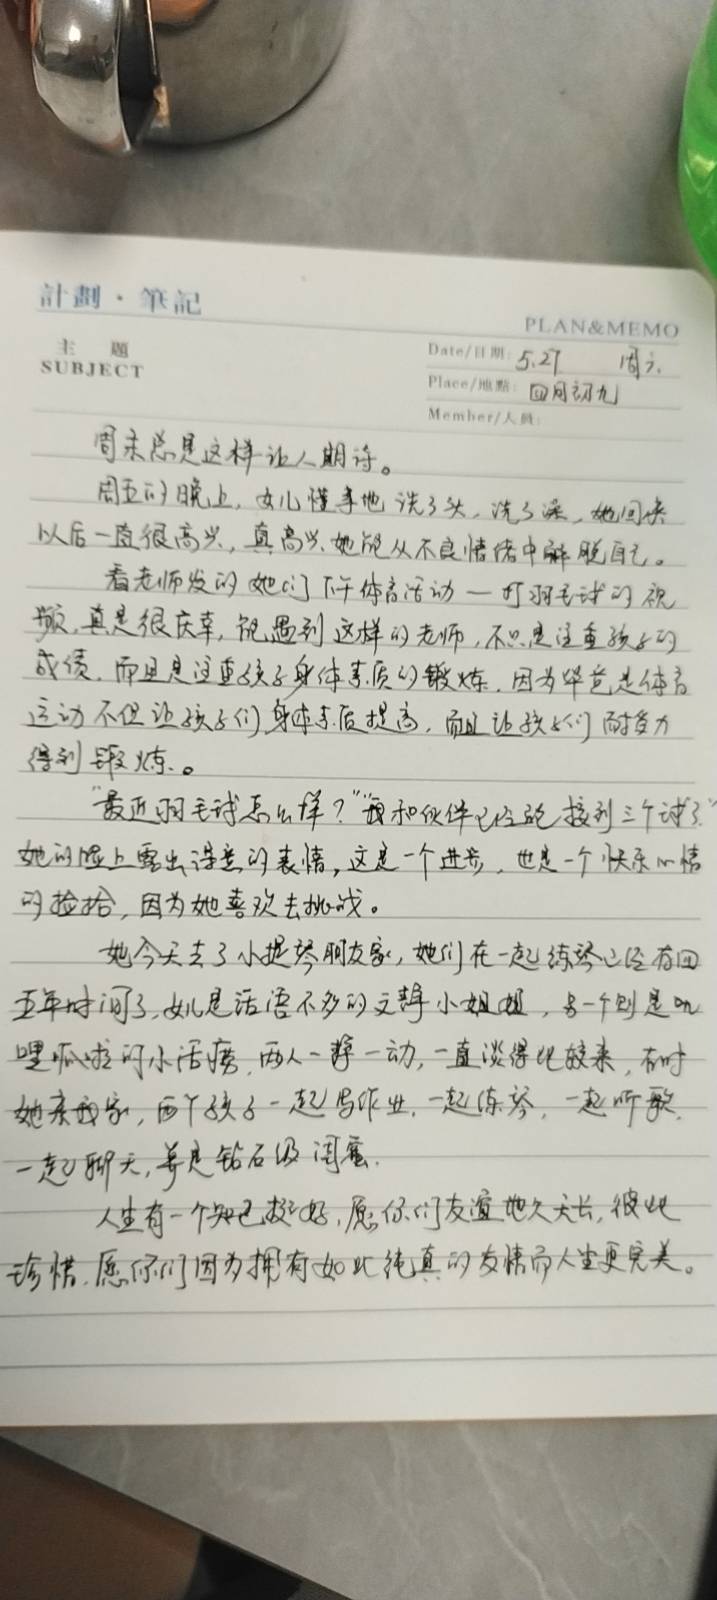 計劃·筆記
PLAN&MEMO
主 題
SUBJECT
Date/日期: 5.27 周六.
Place/地點: 四月初九
Member/人員:
周末总是这样让人期待。
周五的晚上，女儿懂事地洗了头，洗了澡，她回来
以后一直很高兴，真高兴她能从不良情绪中解脱自己。
看老师发的她们下午体育活动—打羽毛球的视
频，真是很庆幸，能遇到这样的老师，不只是注重孩子的
成绩，而且是注重孩子身体素质的锻炼，因为毕竟是体育
运动不但让孩子们身体素质提高，而且让孩子们耐受力
得到锻炼。
“最近羽毛球怎么样？”“我和伙伴已经能接到三个球了”
她的脸上露出得意的表情，这是一个进步，也是一个快乐心情
的捡拾，因为她喜欢去挑战。
她今天去了小提琴朋友家，她们在一起练琴已经有四
五年时间了，女儿是话语不多的文静小姐姐，另一个则是叽
哩呱啦的小话痨，两人一静一动，一直谈得比较来，有时
她来我家，两个孩子一起写作业，一起练琴，一起听歌，
一起聊天，算是钻石级闺蜜.
人生有一个知已挺好，愿你们友谊地久天长，彼此
珍惜，愿你们因为拥有如此纯真的友情而人生更完美。